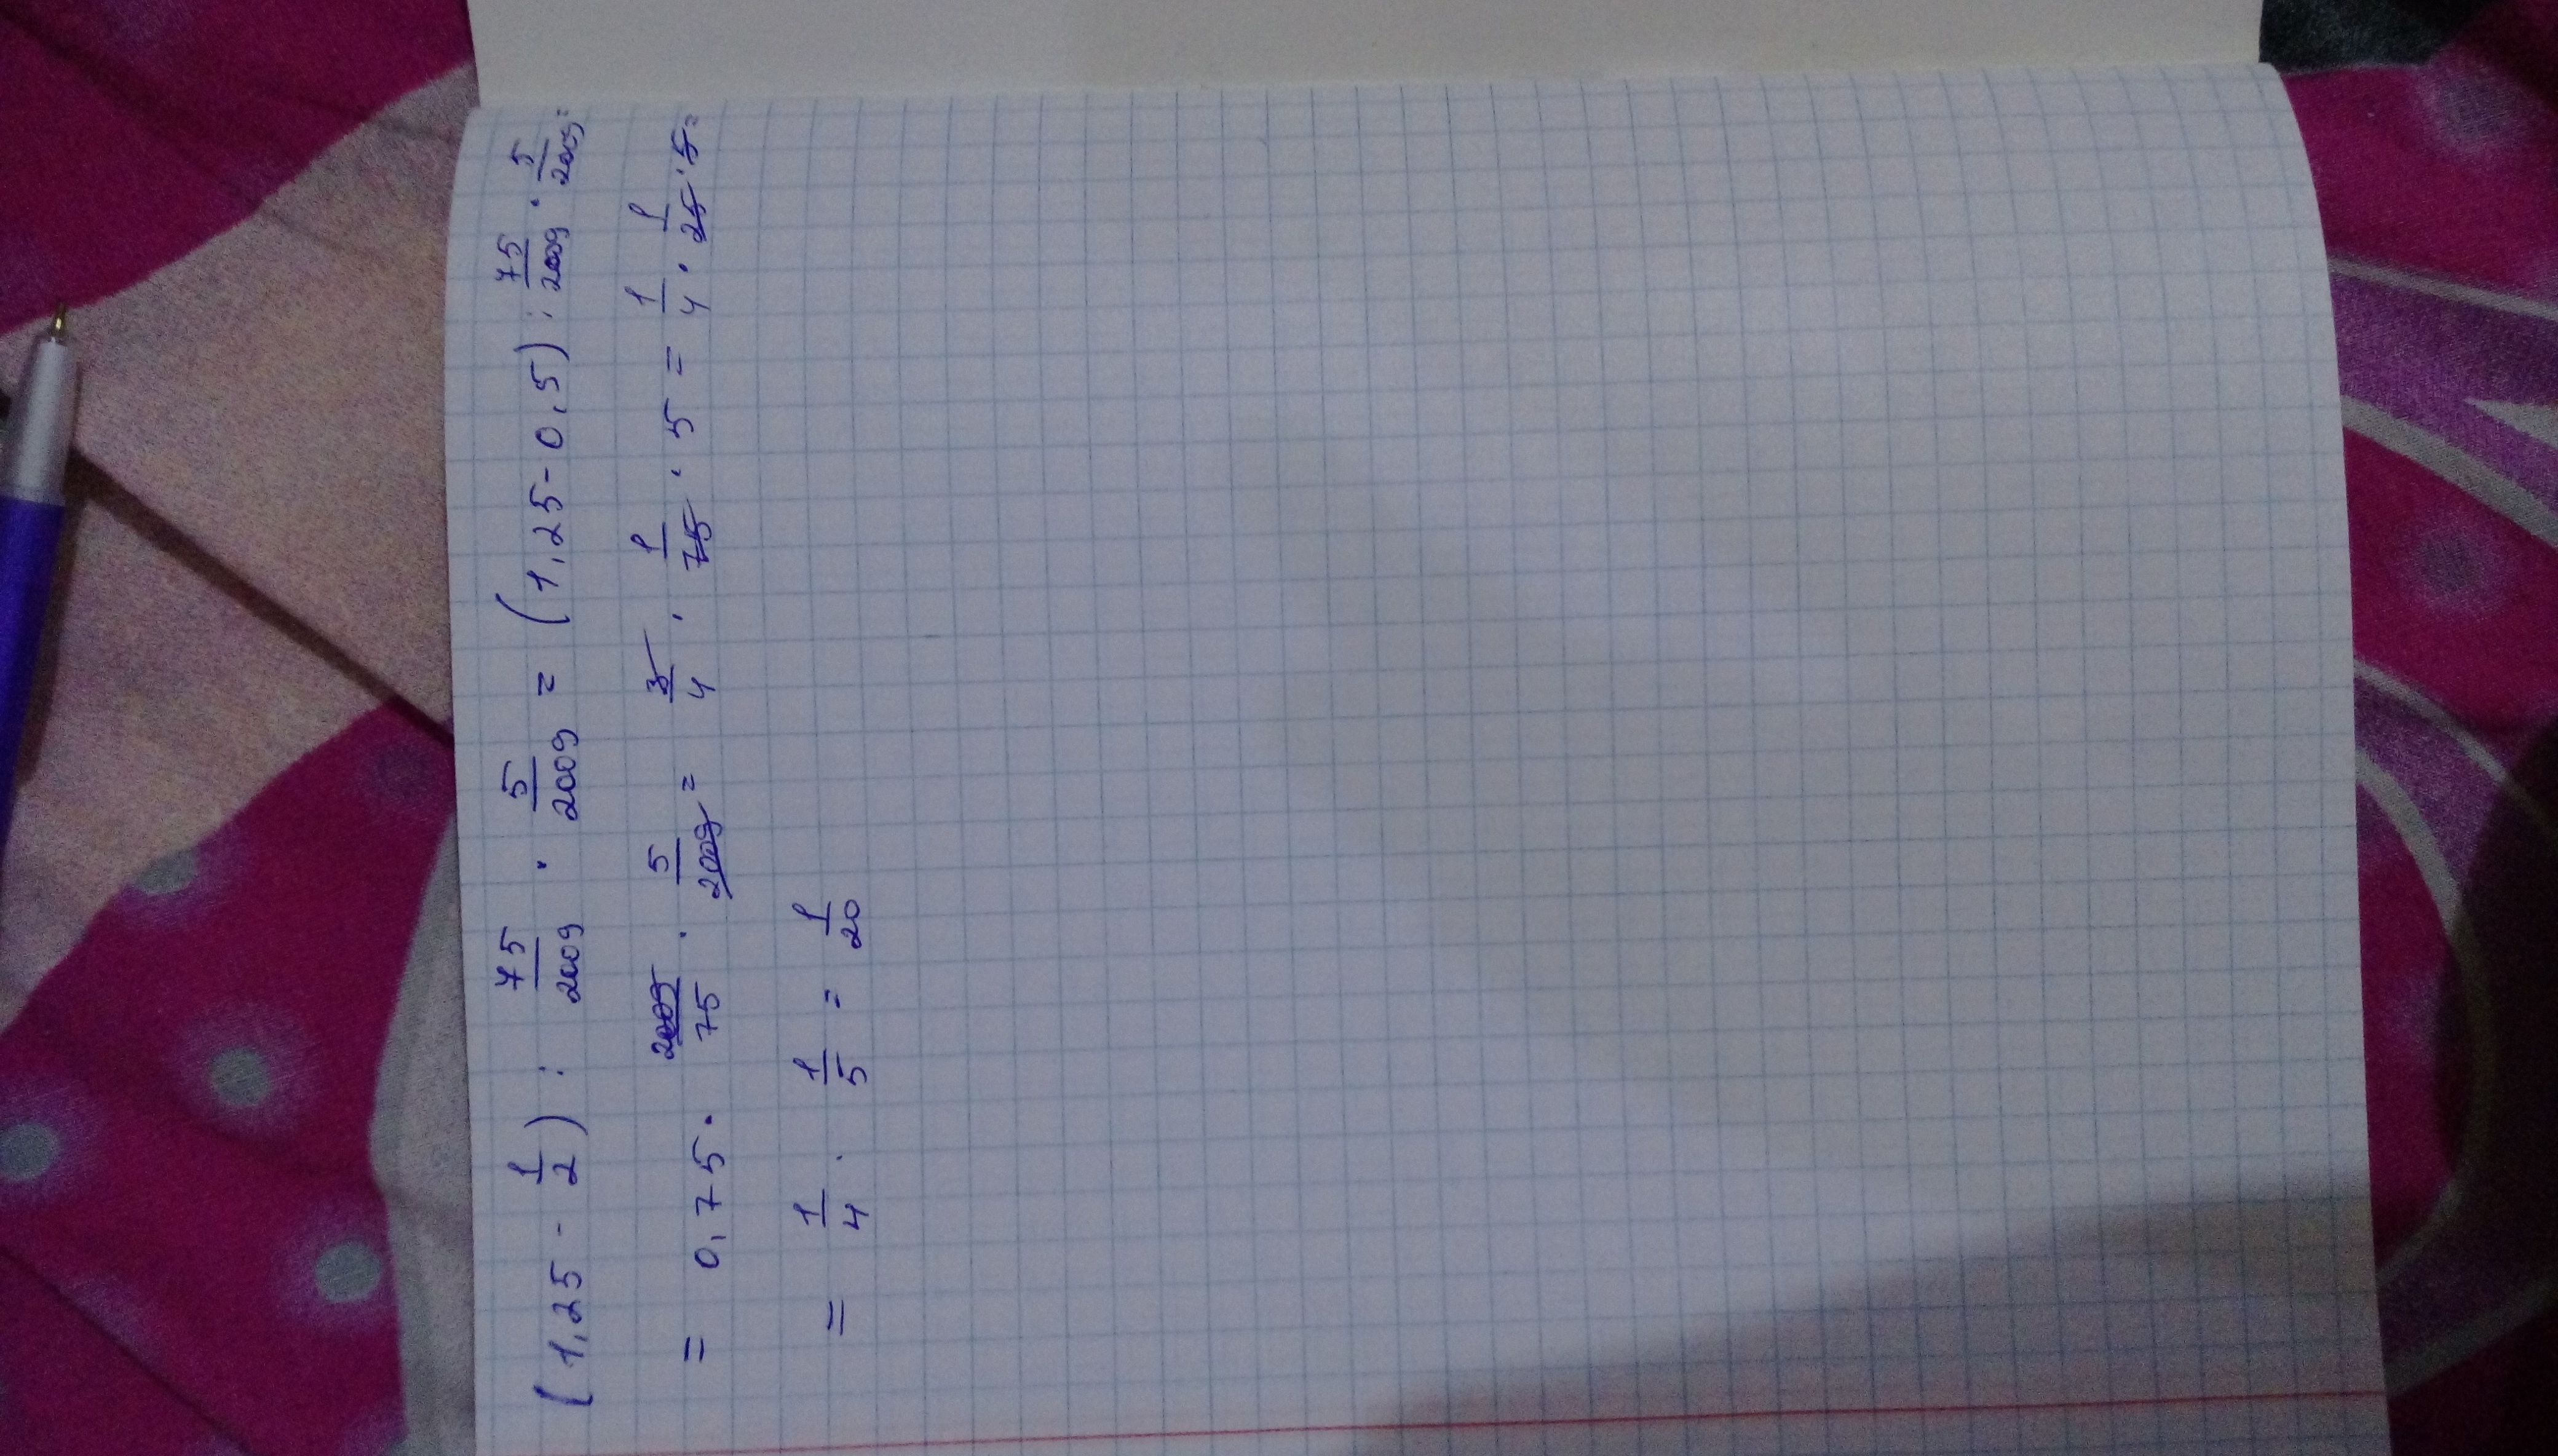 (1,25 - 1/2) : 75/2009 · 5/2009 = (1,25 - 0,5) : 75/2009 · 5/2009 =
= 0,75 · 2009/75 · 5/2009 = 3/4 · 1/75 · 5 = 1/4 · 1/25 · 5 =
= 1/4 · 1/5 = 1/20